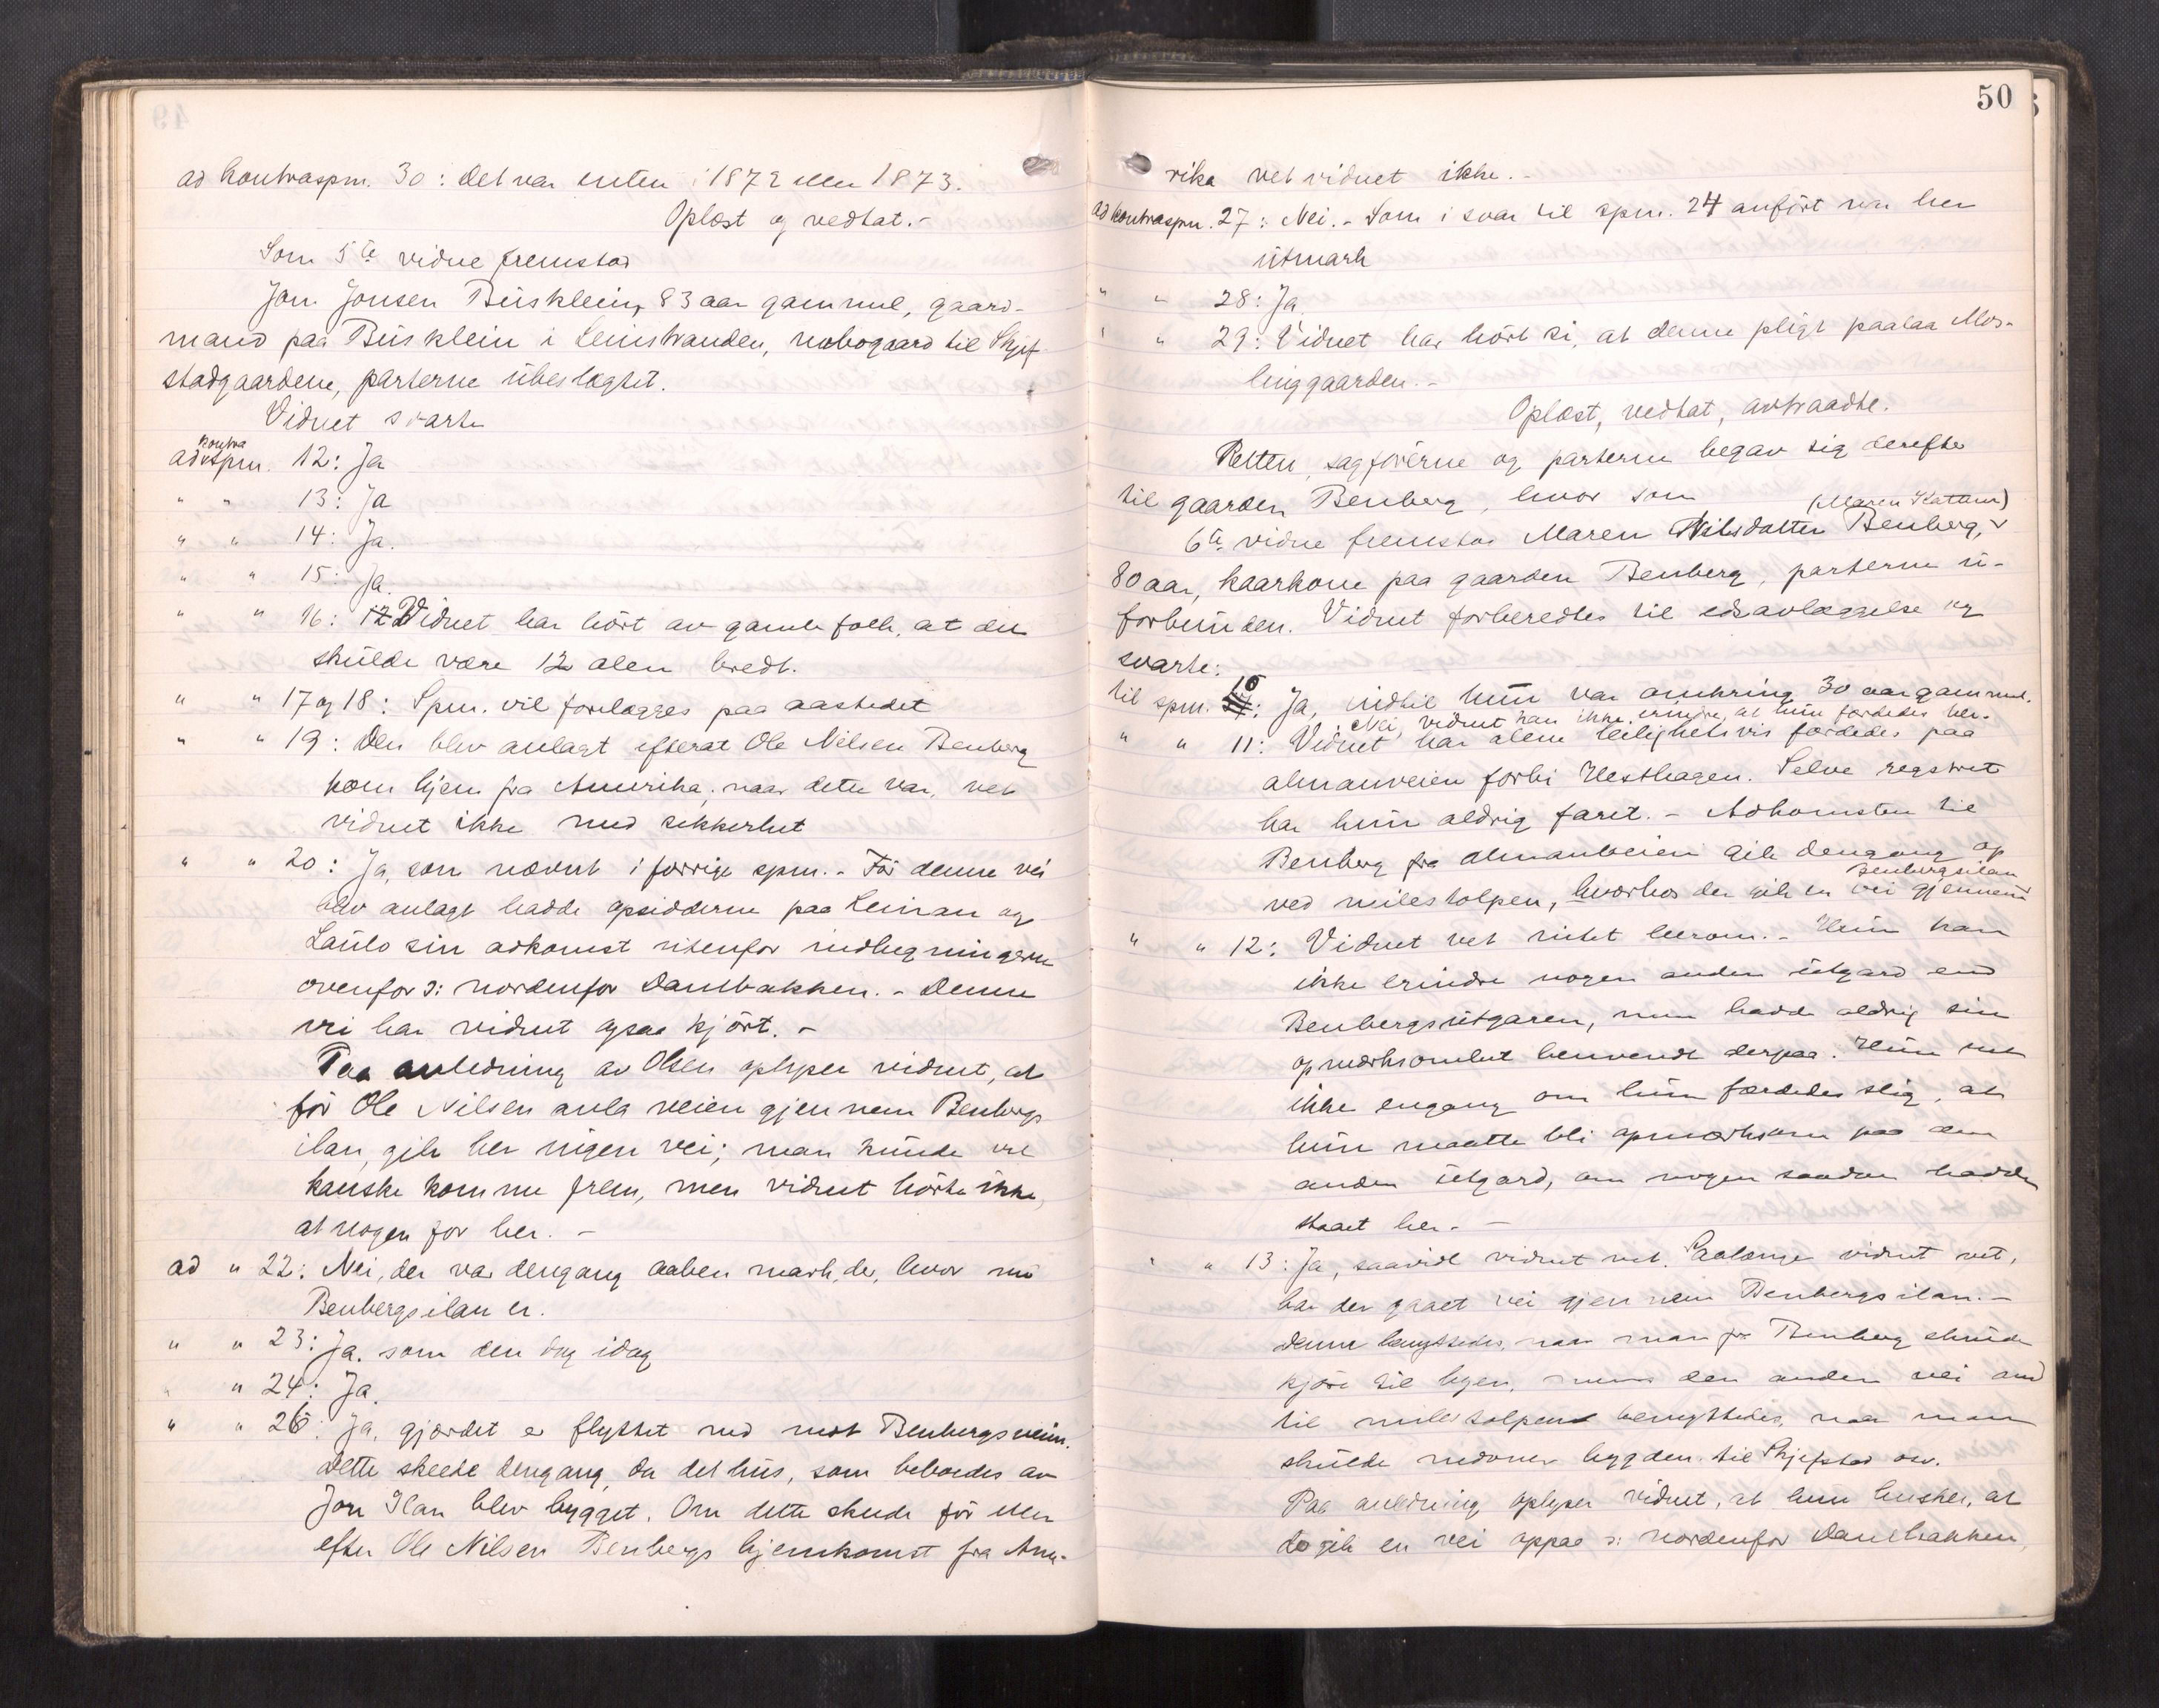 ad kontraspm. 30: det var enten i 1872 eller 1873.
Oplæst og vedtat.-
Som 5te vidne fremstod
Jon Jonsen Busklein, 83 aar gammel, gaard-
mand paa Busklein i Leinstranden, nabogaard til Skjef-
stadgaardene, parterne ubeslægtet.
Vidnet svarte
kontra
ad spm. 12: Ja
" " 13: Ja
" " 14: Ja.
" " 15: Ja.
" " 16: Vidnet har hørt av gamle folk, at den
skulde være 12 alen bredt.
" " 17 og 18: Spm. vil forelægges paa aastedet
" " 19: Den blev anlagt efterat Ole Nilsen Benberg
kom hjem fra Amerika; naar dette var, vet
vidnet ikke med sikkerhet
" " 20: Ja, som nævnt i forrige spm. - Før denne vei
blev anlagt hadde opsidderne paa Leinan og
Laulo sin adkomst utenfor indhegningerne
ovenfor ɔ: nordenfor Danebakken. - Denne
vei har vidnet ogsaa kjørt. -
Paa anledning av Olsen oplyser vidnet, at
før Ole Nilsen anla veien gjennem Benbergs
ilan, gik her ingen vei; man kunde vel
kanske komme frem, men vidnet hørte ikke,
at nogen for her. -
ad " 22: Nei, der var dengang aaben mark, der, hvor nu
Benbergsilan er.
" " 23: Ja. som den dag idag
" " 24: Ja.
" " 26: Ja, gjærdet er flyttet ned mot Benbergsveien.
Dette skeede dengang, da det hus, som beboedes av
Jon Ilan blev bygget. Om dette skede før eller
efter Ole Nilsen Benbergs hjemkomst fra Ame-
50
rika vet vidnet ikke.-
ad kontraspm. 27: Nei. - Som i svar til spm. 24 anført var her
utmark
" " 28: Ja.
" " 29: Vidnet har hørt si, at denne pligt paalaa Mos-
linggaarden.-
Oplæst, vedtat, avtraadte.
Retten, sagførerne og parterne begav sig derefter
til gaarden Benberg, hvor som
(Maren Kattem)
6te vidne fremstod Maren Nilsdatter Benberg,
80 aar, kaarkone paa gaarden Benberg, parterne u-
forbunden. Vidnet forberedtes til edsavlæggelse og
svarte:
til spm. 10: Ja, indtil hun var omkring 30 aar gammel.
Nei, vidnet kan ikke erindre, at hun færdedes her.
" " 11: Vidnet har alene leilighetsvis færdedes paa
almanveien forbi Hesthagen. Selve
har hun aldrig faret. - Adkomsten til
Benberg fra almanveien gik dengang op
Benbergsilan
ved milestolpen, hvorhos der gik en vei gjennem
" " 12: Vidnet vet intet herom. - Hun kan
ikke erindre nogen anden utgard end
Benbergsutgaren, men hadde aldrig sin
opmerksomhet henvendt derpaa. Hun vet
ikke engang om hun færdedes slig, at
hun maatte bli opmerksom paa den
anden utgard, om nogen saadan hadde
staaet her. -
" " 13: Ja, saavidt vidnet vet. Saalænge vidnet vet,
har der gaaet vei gjennem Benbergsilan. -
Denne benyttedes, naar man fra Benberg skulde
kjøre til byen, mens den anden vei
til milestolpen benyttedes, naar man
skulde nedover bygden til Skjefstad osv.
Paa anledning oplyser vidnet, at hun husker, at
de gik en vei oppaa ɔ: nordenfor Danebakken,